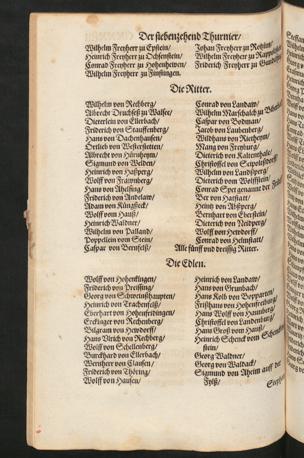 Der siebenzehend Thurnier/
Wilhelm Freyherr zu Epstein/
Heinrich Freyherr zu Ochsenstein/
Conrad Freyherr zu Hohenheuen/
Wilhelm Freyherr zu Finstingen.
Johan Freyherr zu
Wilhelm Freyherr zu
Friderich Freyherr zu
Die Ritter.
Wilhelm von Rechberg/
Albrecht Druchseß zu
Dieterlein von Ellerbach/
Friderich von Stauffenberg/
Hans von Dachenhausen/
Ortlieb von Westerstetten/
Albrecht von Hürnheym/
Sigmund von Welden/
Heinrich von Haßperg/
Wolff von Frawnberg/
Hans von Ahelfing/
Friderich von Andelaw/
Adam von Küngßeck/
Wolff vom Hauß/
Heinrich Waldner/
Wilhelm von Palland/
Poppelein vom Stein/
Caspar von Bernfelß/
Conrad von Landaw/
Wilhelm Marschalck zu
Caspar von Bodman/
Jacob von Laubenberg/
Wildhans von Rietheym/
Marq von Freyburg/
Dieterich von Kaltenthale/
Christoffel von Seyboldsdorff/
Wilhelm von Landsperg/
Dieterich von Wolffstein/
Conrad Spet genannt der
Ber von Hatstatt/
Heinz von Absperg/
Bernhart von Eberstein/
Dieterich von Neidperg/
Wolff von Hewdorff/
Conrad von Helmstatt/
Alle fünff und dreissig Ritter.
Die Edlen.
Wolff von Hohenklingen/
Friderich von Preissing/
Georg von Schweinßhaupten/
Heinrich von Drachenfelß/
Eberhart von Hohenfirdingen/
Erckinger von Rechenberg/
Pilgram von Hewdorff/
Hans Ulrich von Rechberg/
Wolff von Schellenberg/
Burckhard von Ellerbach/
Wernherr von Clausen/
Friderich von Thöring/
Wolff von Hausen/
Heinrich von Landaw/
Hans von Grunbach/
Hans Kolb von Bopparten/
Frischhans von Hohenfreyberg/
Hans Wolff von Hannberg/
Christoffel von Landenburg/
Hans Groß vom Hauß/
Heinrich Schenck vom
stein/
Georg Waldner/
Georg von Waldack/
Sigmund von Aheim auff der